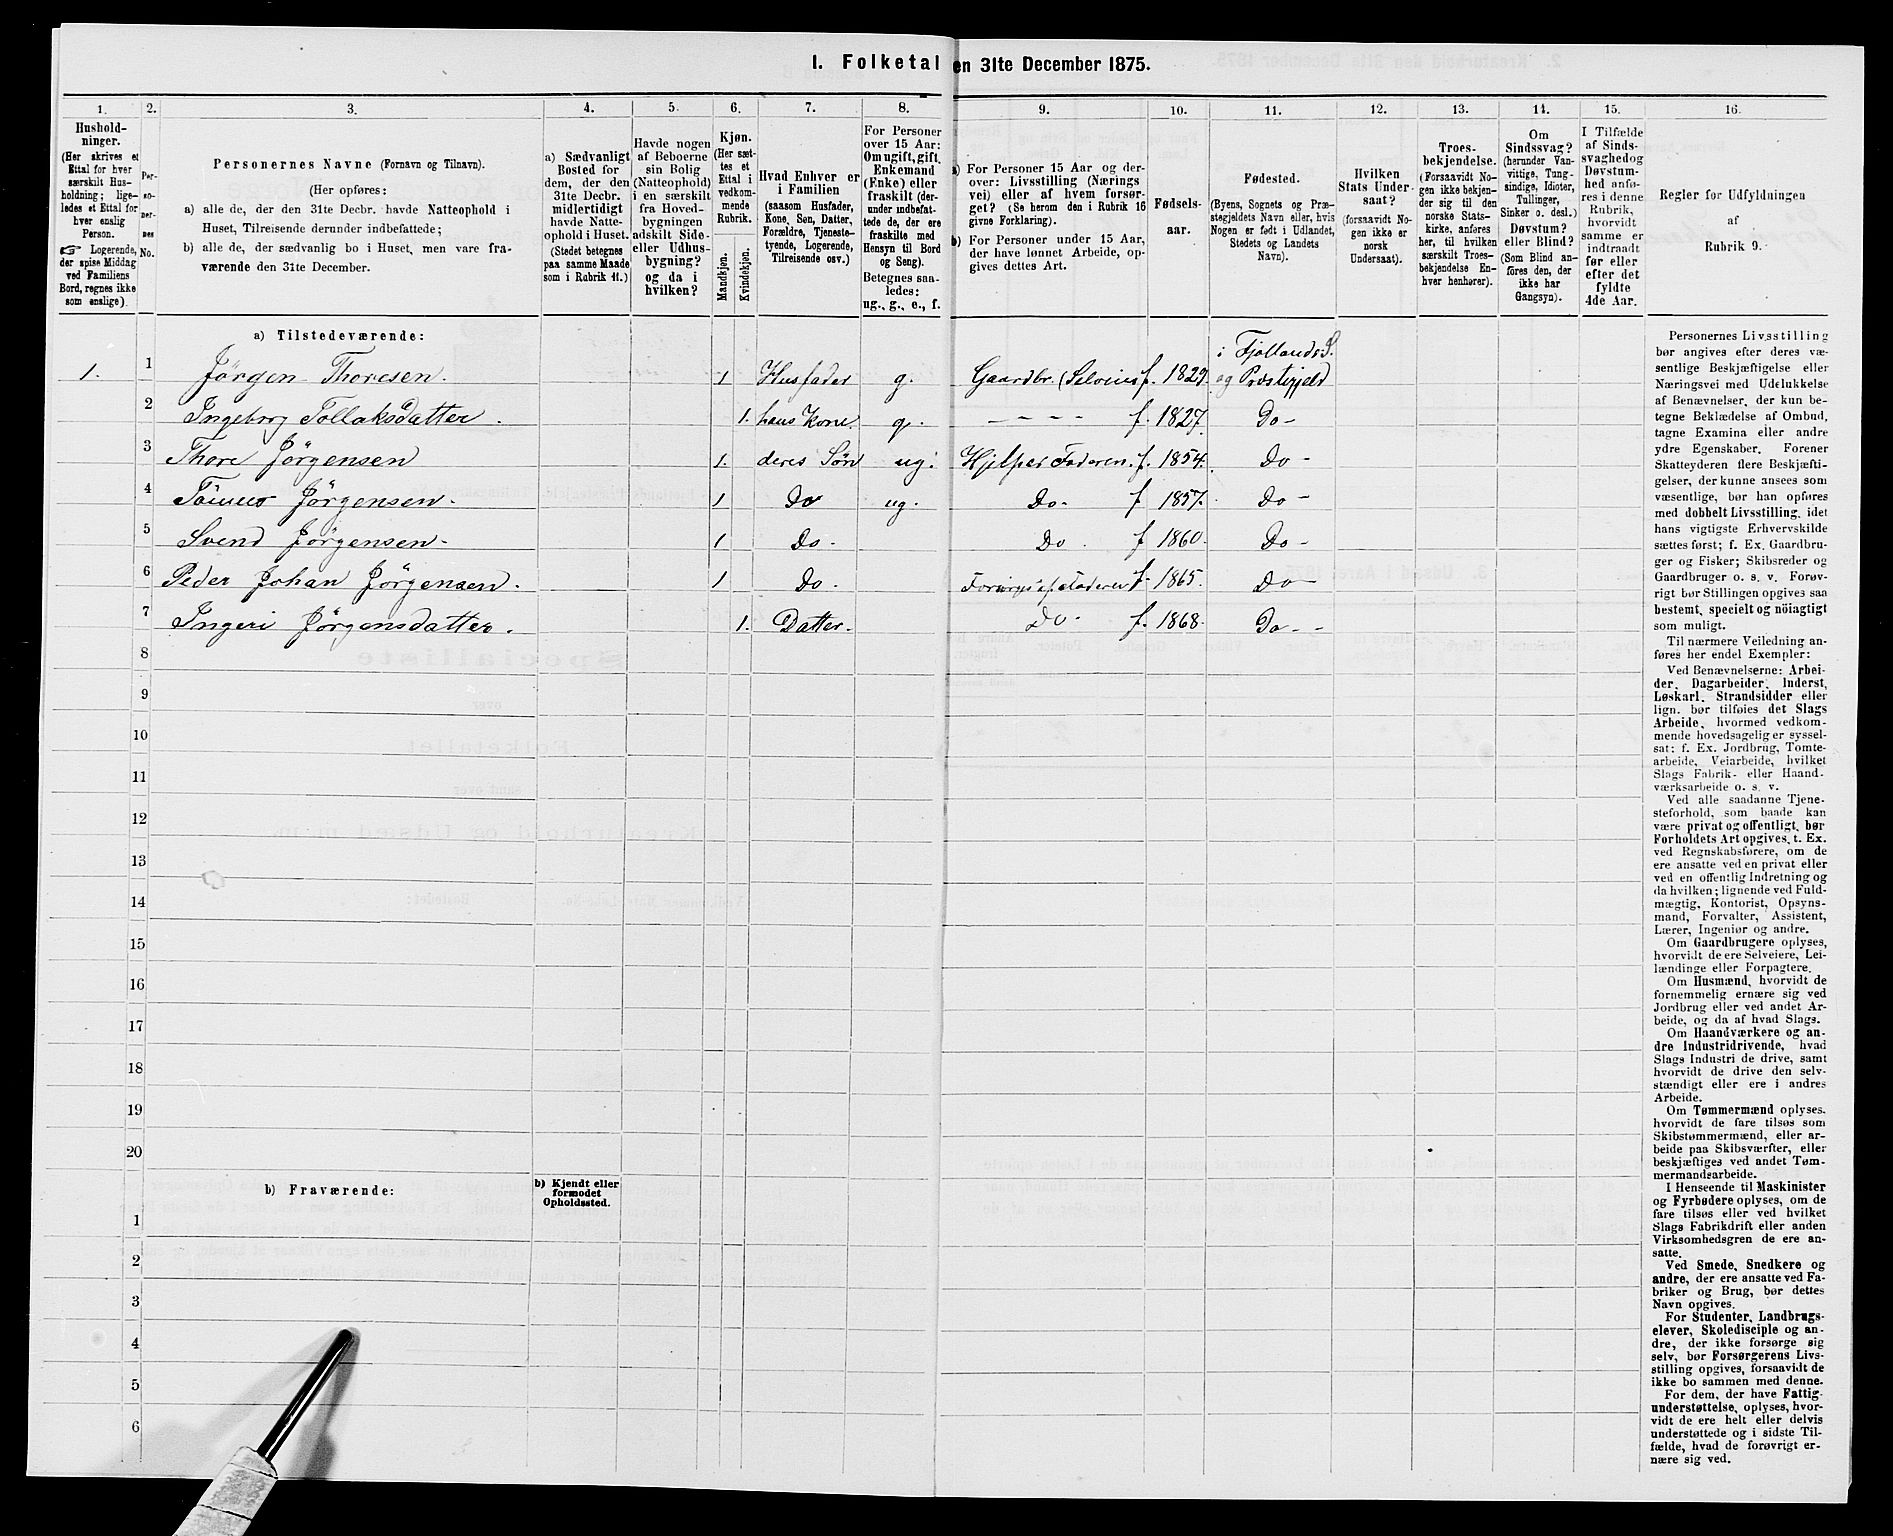 I. Folketal den 31te December 1875.
1.
Hushold-
ninger.
(Her skrives et
Ettal for hver
særskilt Hus-
holdning; lige-
ledes et Ettal for
hver enslig
Person.
☞ Logerende,
der spise Middag
ved Familiens
Bord, regnes ikke
som enslige).
2.
Per-
so-
ner-
nes
No.
3.
Personernes Navne (Fornavn og Tilnavn).
(Her opføres:
a) alle de, der den 31te Decbr. havde Natteophold i
Huset, Tilreisende derunder indbefattede;
b) alle de, der sædvanlig bo i Huset, men vare fra-
værende den 31te December.
4.
a) Sædvanligt
Bosted for
dem, der den
31te Decbr.
midlertidigt
havde Natte-
ophold i Huset.
(Stedet betegnes
paa samme Maade
som i Rubrik 11.)
5.
Havde nogen
af Beboerne
sin Bolig
(Natteophold)
i en særskilt
fra Hoved-
bygningen
adskilt Side-
eller Udhus-
bygning?
og da i
hvilken?
6.
Kjøn.
(Her sæt-
tes et
Ettal i
vedkom-
mende
Rubrik.
Mandkjøn.
Kvindekjøn.
7.
Hvad Enhver er
i Familien
(saasom Husfader,
Kone, Søn, Datter,
Forældre, Tjeneste-
tyende, Logerende,
Tilreisende osv.)
8.
For Personer
over 15 Aar:
Om ugift, gift,
Enkemand
(Enke) eller
fraskilt (der-
under indbefat-
tede de, der ere
fraskilte med
Hensyn til Bord
og Seng).
Betegnes saa-
ledes:
ug., g., e., f.
9.
a) For Personer 15 Aar og der-
over: Livsstilling (Nærings
vei) eller af hvem forsør-
get? (Se herom den i Rubrik 16
givne Forklaring).
b) For Personer under 15 Aar,
der have lønnet Arbeide, op-
gives dettes Art.
10.
Fødsels-
aar.
11.
Fødested.
(Byens, Sognets og Præ-
stegjeldets Navn eller, hvis
Nogen er født i Udlandet,
Stedets og Landets
Navn).
12.
Hvilken
Stats Under-
saat?
(forsaavidt No-
gen ikke er
norsk
Undersaat).
13.
Troes-
bekjendelse.
(Forsaavidt No-
gen ikke bekjen-
der sig til den
norske Stats-
kirke, anføres
her, til hvilken
særskilt Troes-
bekjendelse En-
hver henhører).
14.
Om
Sindssvag?
(herunder Van-
vittige, Tung-
sindige, Idioter,
Tullinger,
Sinker o. desl.)
Døvstum?
eller Blind?
(Som Blind an-
føres den, der
ikke har
Gangsyn).
15.
I Tilfælde
af Sinds-
svaghed og
Døvstum-
hed anfø-
res i denne
Rubrik,
hvorvidt
samme er
indtraadt
før eller
efter det
fyldte
4de Aar.
16.
Regler for Udfyldningen
af
Rubrik 9.
a) Tilstedeværende:
i Fjotlands S.
1. 1 Jørgen Thoresen. 1 Husfader g. Gaardbr. (Selveier f. 1829. og Præstegjeld
2 Ingeborg Tollaksdatter. 1. hans Kone. g. - - - - f. 1827. Do-
3 Thore Jørgensen 1. deres Søn ug. Hjelper Faderen. f. 1854. Do-
4 Tønnes Jørgensen. 1 Do ug. Do. f 1857. Do-
5 Svend Jørgensen. 1 Do. Do. f 1860. Do-
6 Peder Johan Jørgensen. 1 Do. Forsørges af Faderen f 1865. Do-
7 Ingeri Jørgensdatter. 1. Datter. Do. f. 1868. Do--
8
9
10
11
12
13
14
15
16
17
18
19
20
b) Fraværende:
b) Kjendt eller
formodet
Opholdssted.
1
2
3
4
5
6
Personernes Livsstilling
bør angives efter deres væ-
sentlige Beskjæftigelse eller
Næringsvei med Udelukkelse
af Benævnelser, der kun be-
tegne Beklædelse af Ombud,
tagne Examina eller andre
ydre Egenskaber. Forener
Skatteyderen flere Beskjæfti-
gelser, der kunne ansees som
væsentlige, bør han opføres
med dobbelt Livsstilling, idet
hans vigtigste Erhvervskilde
sættes først; f. Ex. Gaardbru-
ger og Fisker; Skibsreder og
Gaardbruger o. s. v. Forøv-
rigt bør Stillingen opgives saa
bestemt, specielt og nöiagtigt
som muligt.
Til nærmere Veiledning an-
føres her endel Exempler:
Ved Benævnelserne: Arbei-
der, Dagarbeider, Inderst,
Løskarl, Strandsidder eller
lign. bør tilføies det Slags
Arbeide, hvormed vedkom-
mende hovedsagelig er syssel-
sat; f. Ex. Jordbrug, Tomte-
arbeide, Veiarbeide, hvilket
Slags Fabrik- eller Haand-
værksarbeide o. s. v.
Ved alle saadanne Tjene-
steforhold, som baade kan
være privat og offentligt, bør
Forholdets Art opgives, t. Ex.
ved Regnskabsførere, om de
ere ansatte ved en privat eller
ved en offentlig Indretning og
da hvilken; lignende ved Fuld-
mægtig, Kontorist, Opsyns-
mand, Forvalter, Assistent,
Lærer, Ingeniør og andre.
Om Gaardbrugere oplyses,
hvorvidt de ere Selveiere, Lei-
lændinge eller Forpagtere.
Om Husmænd, hvorvidt de
fornemmelig ernære sig ved
Jordbrug eller ved andet Ar-
beide, og da af hvad Slags.
Om Haandværkere og an-
dre Industridrivende, hvad
Slags Industri de drive, samt
hvorvidt de drive den selv-
stændigt eller ere i andres
Arbeide.
Om Tømmermænd oplyses,
hvorvidt de fare tilsøs som
Skibstømmermænd, eller ar-
beide paa Skibsværfter, eller
beskjæftiges ved andet Tøm-
mermandsarbeide.
I Henseende til Maskinister
og Fyrbødere oplyses, om de
fare tilsøs eller ved hvilket
Slags Fabrikdrift eller anden
Virksomhedsgren de ere an-
satte.
Ved Smede, Snedkere og
andre, der ere ansatte ved Fa-
briker og Brug, bør dettes
Navn opgives.
For Studenter, Landbrugs-
elever, Skoledisciple og an-
dre, der ikke forsørge sig
selv, bør Forsørgerens Livs-
stilling opgives, forsaavidt de
ikke bo sammen med denne.
For dem, der have Fattig-
understøttelse, oplyses, hvor-
vidt de ere helt eller delvis
understøttede og i sidste Til-
fælde, hvad de forøvrigt er-
nære sig ved.